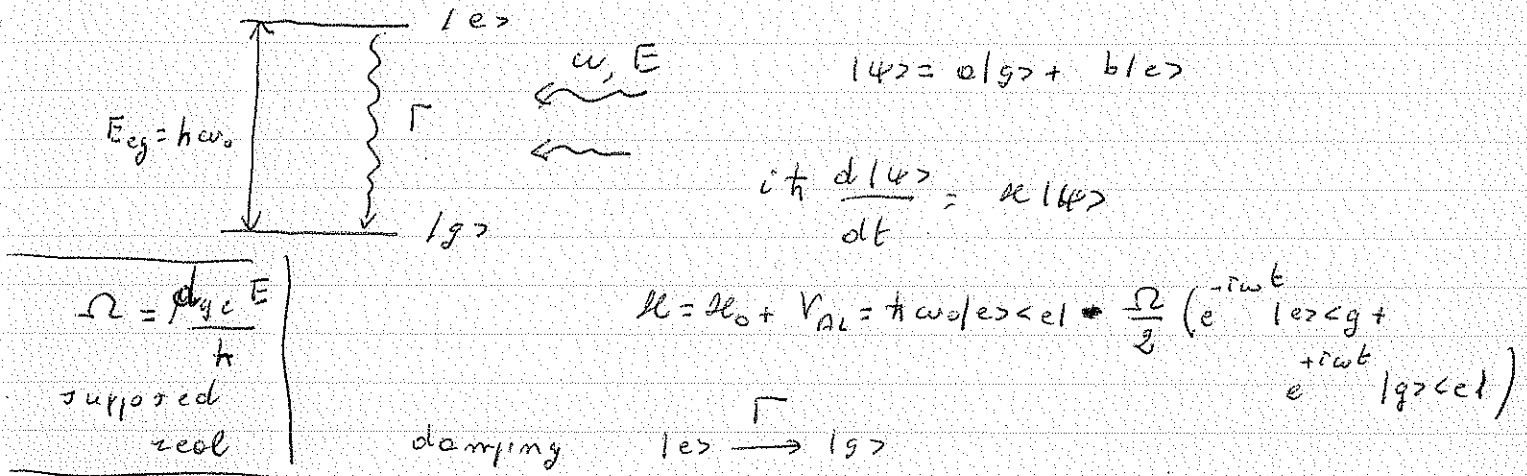 |e>
ω, E
|ψ> = a|g> + b|e>
E_eg = ħω₀
Γ
iħ d|ψ>/dt = ℋ|ψ>
|g>
Ω = d_ge E / ħ
supposed
real
ℋ = ℋ₀ + V_AL = ħω₀|e><e| - Ω/2 (e^{-iωt} |e><g +
e^{+iωt} |g><e|)
damping |e> Γ→ |g>